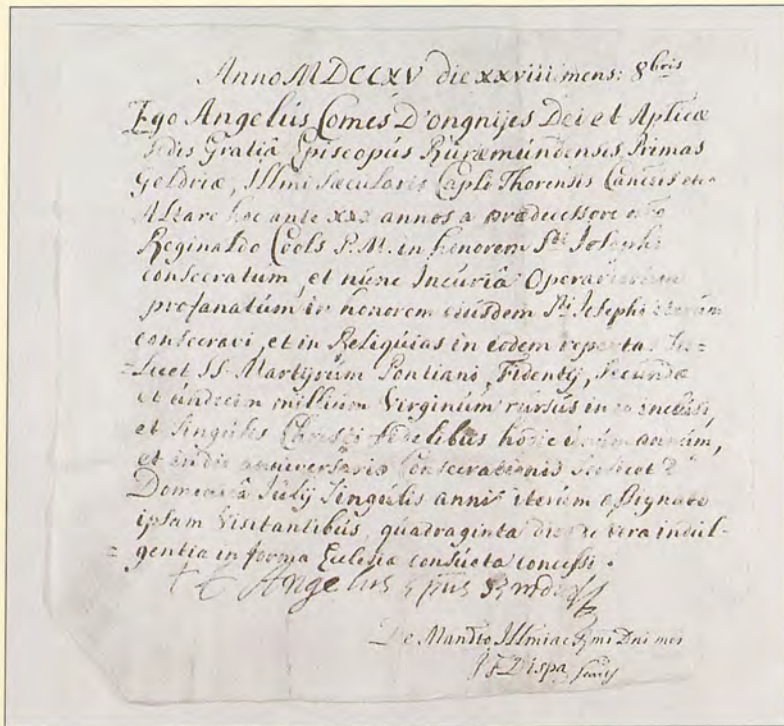 Anno MDCCXV die xxviii mens: 8bris
Ego Angelús Comes D'ongnijes Dei et Aplicæ
sedis Gratiâ Episcopús Rúræmúndensis, Primas
Geldriæ, Illmi Sæcularis Capli Thorensis
Altare hoc ante xxx annos a prædecessore
Reginaldo Cools P.M. in honorem Sti Iosephi
consecratum, et núnc Incúriâ Operariorum
profanatúm in honorem eiúsdem Sti Iosephi iterúm
consecravi, et in Reliqúias in eodem repertas Sci=
=licet SS. Martyrúm Pontiani, Fidentij, Secundæ
et úndecim millium Virginúm rúrsús in eo inclúsi,
et singúlis Christi fidelibus hodie únúm annúm,
et in die anniversario Consecrationis scilicet 2â
Dominicâ Júlij singúlis annis iterúm assignato
ipsam visitantibús, quadraginta dies de vera indúl-
=gentia in forma Ecclesiæ consúeta concessi.
+ Angelus Epus
De Mandto Illmi ac Rmi Dni mei
J F Dispa Secrius